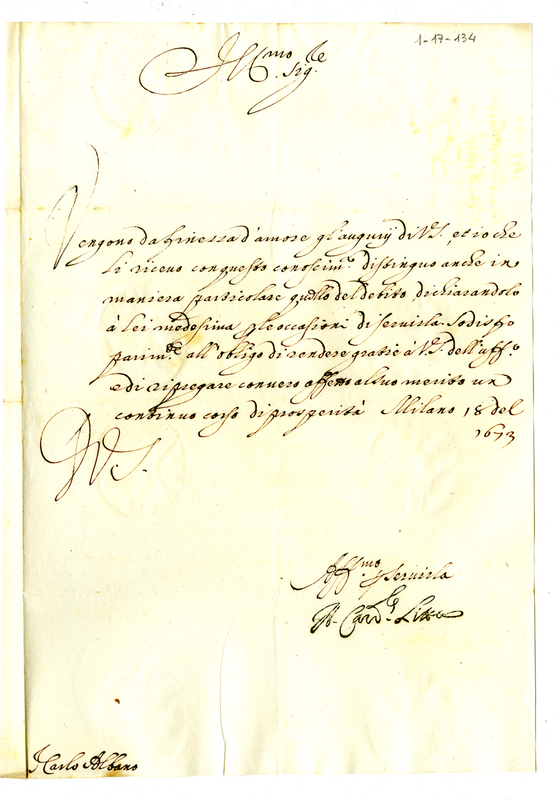 1-17-134
Ill.mo Sig.re
Vengono da finezza d'amore gl'augurij di V.S., et io che
li riceuo con questo conoscim.to distinguo anche in
maniera particolare quello del debito dichiarandolo
à lei medesima p le occasioni di seruirla. Sodisfo
parim.te all'obligo di rendere gratie à V.S. dell'uff.o
e di ripregare con uero affetto al suo merito un
continuo corso di prosperità Milano 18 del
1673
D V.S.
Aff.mo p seruirla
Il Card.le Litta
Carlo Albano